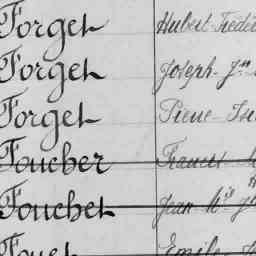 Forget Hubert-Frédér
Forget Joseph-Jn
Forget Pierre-Isi
Foucher Francis
Fouchet Jean-Mie
Fouet Emile